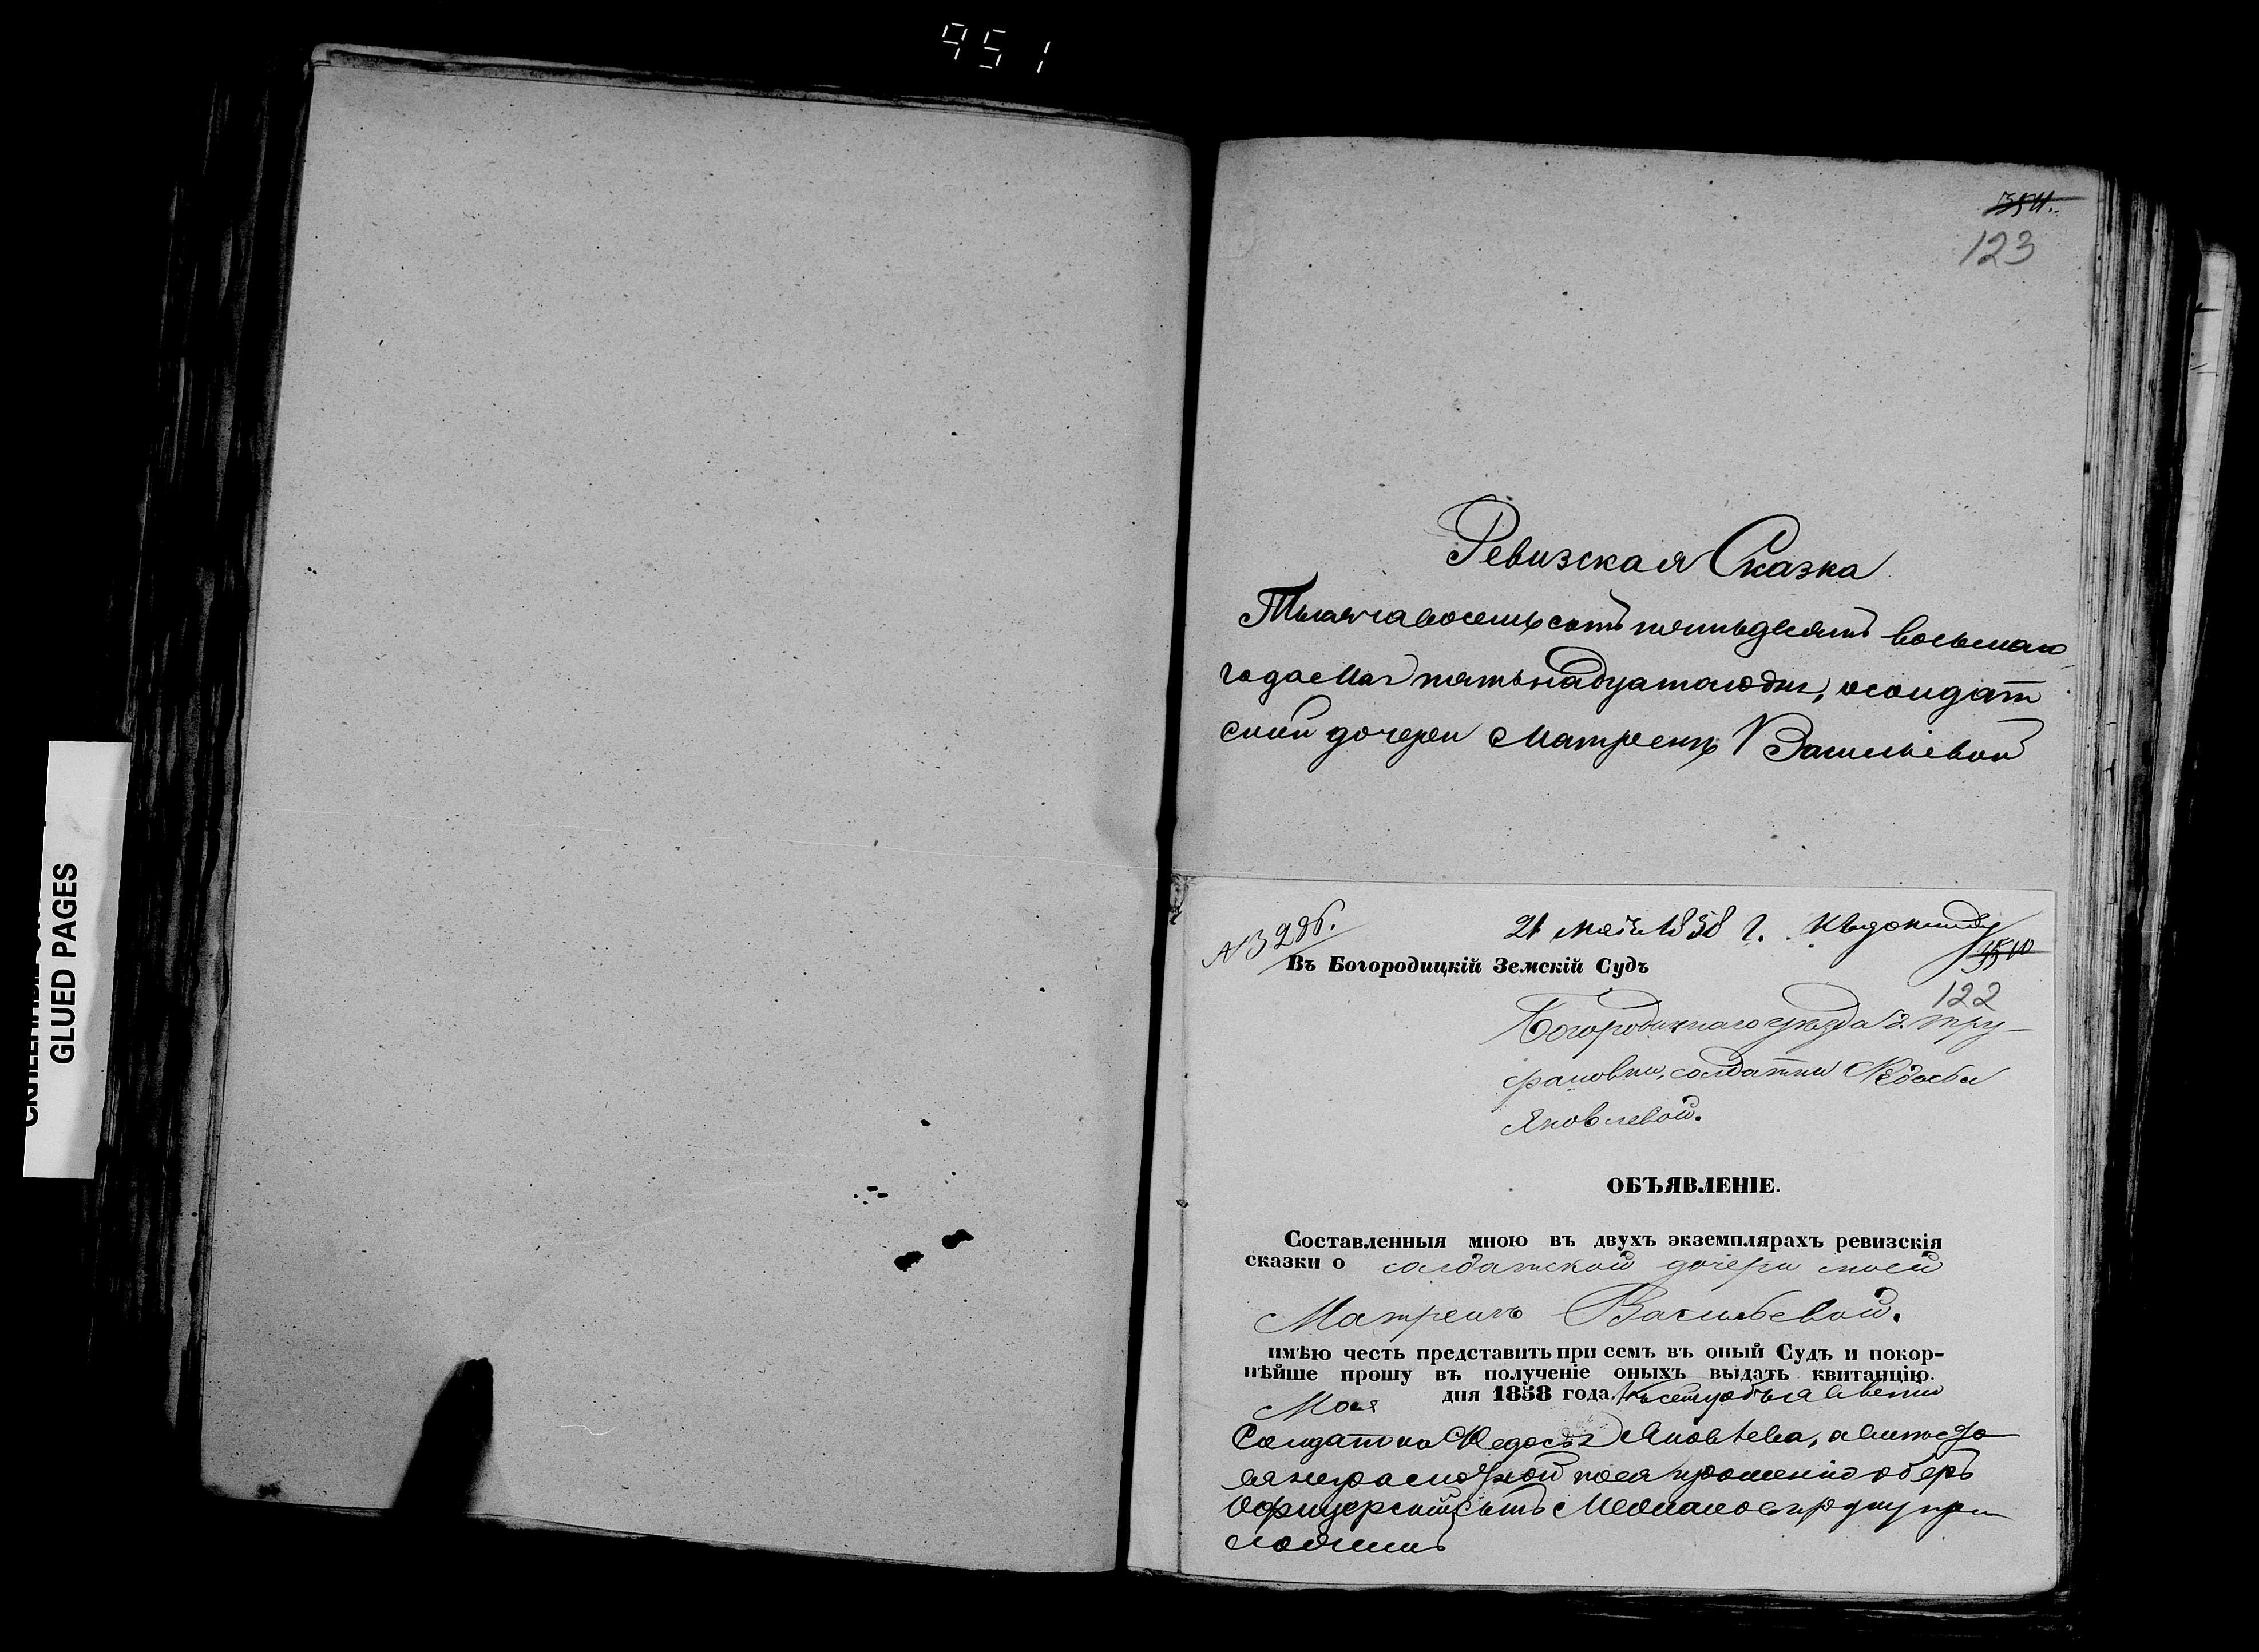 951
GLUED PAGES
354.
123
Ревизская Сказка
Тысяча восемьсотъ пятьдесятъ восьмаго
года Мая пятьнадцатаго дня, о солдат
ской дочери Матренѣ Васильевой
21 Мая 1858 г. Къ докладу
№ 3286.
Въ Богородицкій Земскій Судъ
122
Богородицкаго уѣзда д. Тру-
солдатки Ѳедосьи
Яковлевой.
ОБЪЯВЛЕНІЕ.
Составленныя мною въ двухъ экземплярахъ ревизскія
сказки о солдатской дочери моей
Матренѣ Васильевой.
имѣю честь представить при семъ въ оный Судъ и покор-
нѣйше прошу въ полученіе оныхъ выдать квитанцію.
Мая дня 1858 года. Къ сему объявленію
Солдатка Ѳедосья Яковлева, а вместо
ея неграмотной по ея прошенію оберъ
Офицерскій сынъ руку при
ложилъ